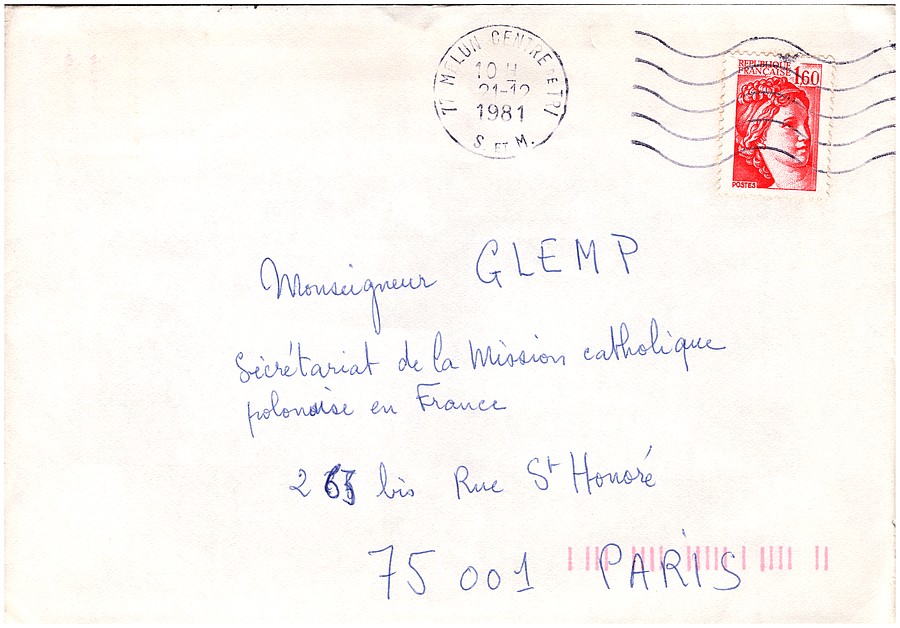 77 MELUN CENTRE DE TRI
10 H
21-12
1981
S. ET M.
REPUBLIQUE
FRANÇAISE 1,60
POSTES
Monseigneur GLEMP
Secrétariat de la Mission catholique
polonaise en France
263 bis Rue St Honoré
75 001 PARIS